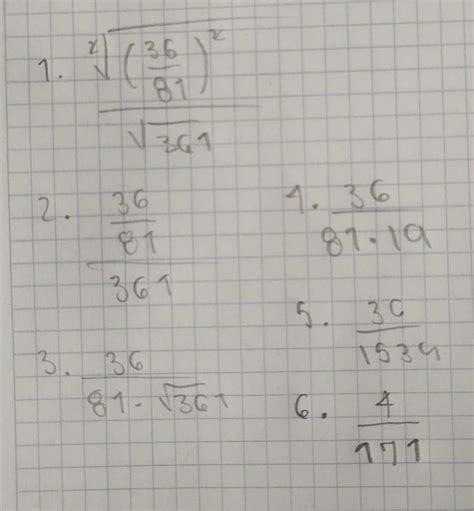 1. ²√(36/81)² / √361
2. 36/81 / 361
3. 36 / 81 · √361
4. 36 / 81 · 19
5. 36 / 1539
6. 4 / 171